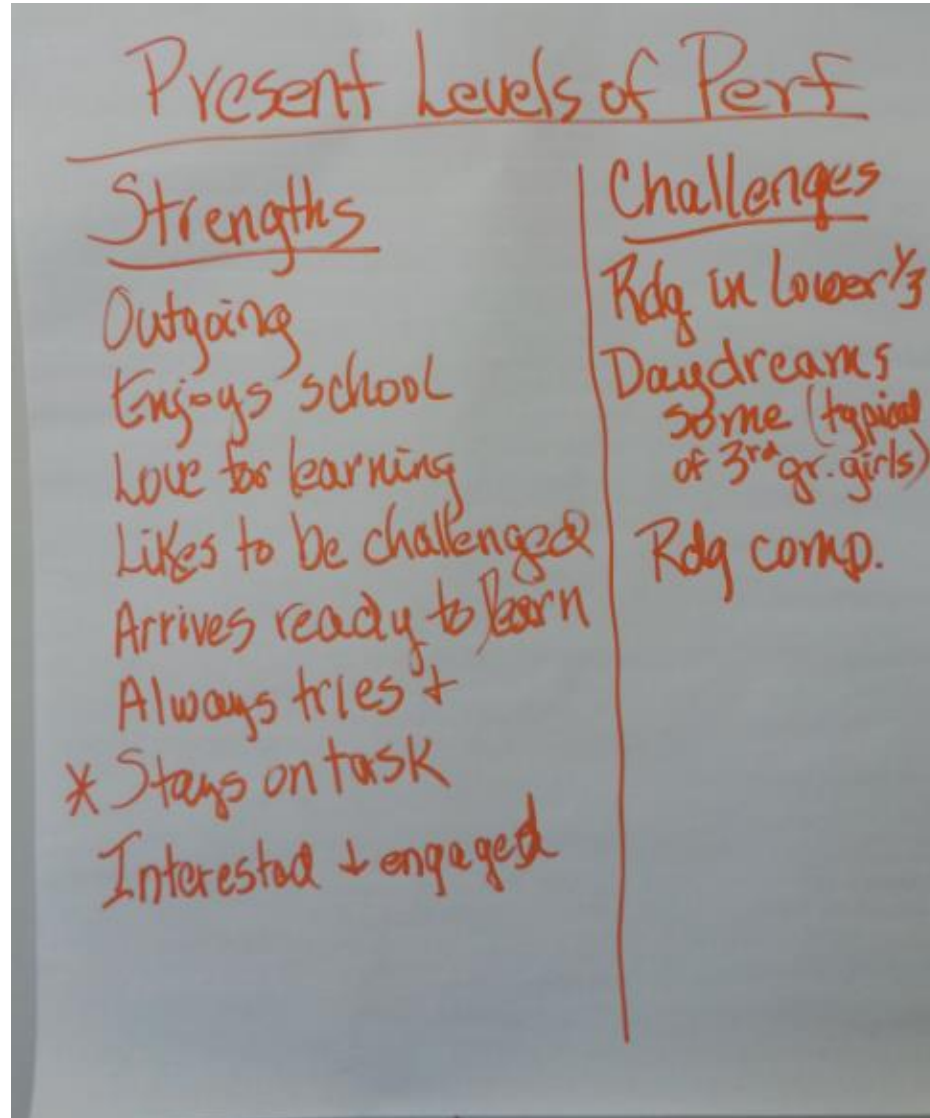 Present Levels of Perf
Strengths
Outgoing
Enjoys school
Love for learning
Likes to be challenged
Arrives ready to learn
Always tries +
* Stays on task
Interested + engaged
Challenges
Rdg in Lower 1/3
Daydreams
some (typical
of 3rd gr. girls)
Rdg comp.